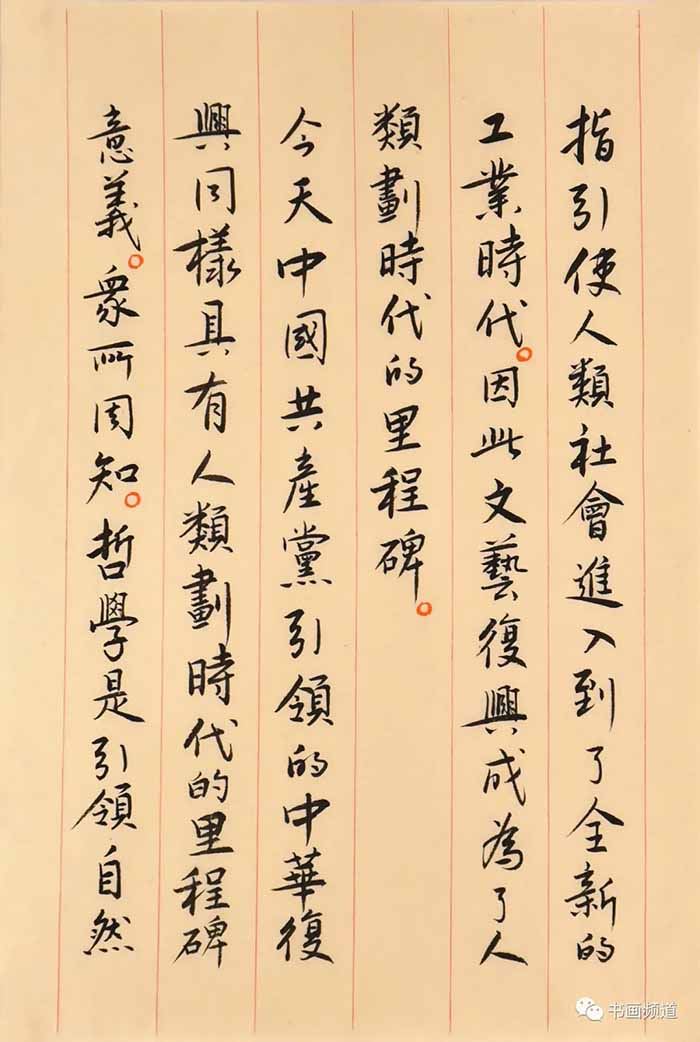 指引使人類社會進入到了全新的
工業時代。因此文藝復興成為了人
類劃時代的里程碑。
今天中國共產黨引領的中華復
興同樣具有人類劃時代的里程碑
意義。衆所周知。哲學是引領自然
书画频道